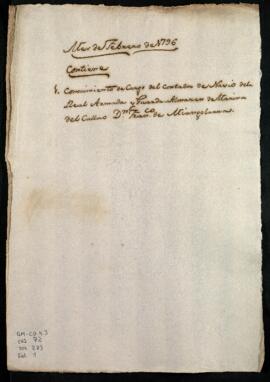 Mes de Febrero de 1796
Contiene
1. Conocimiento de Cargo del Contador de Navio de la
Real Armada y Guarda Almacen de Marina
del Callao Dn. Franco. de
GM-CO 43
CAJ 72
DOC 273
Fol 1